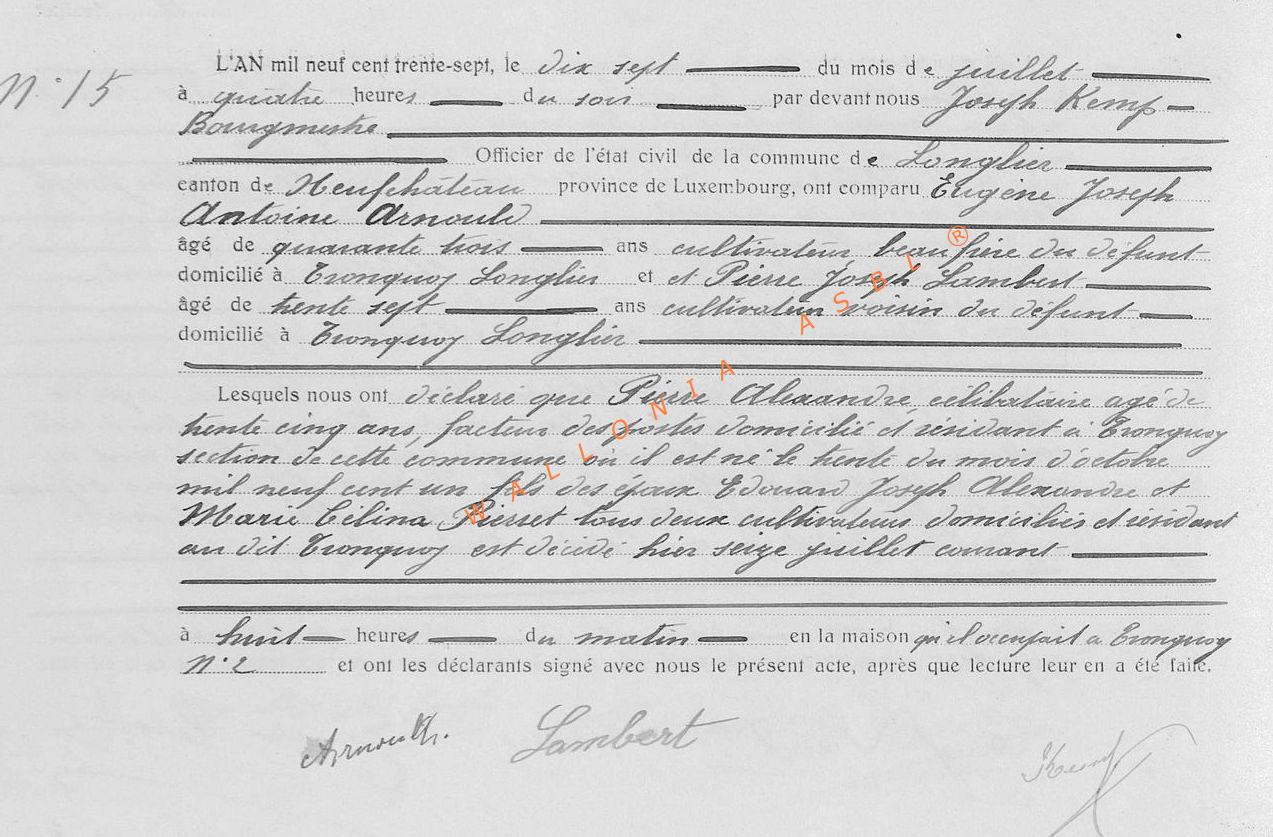 N° 15
L'AN mil neuf cent trente-sept, le dix sept du mois de juillet
à quatre heures du soir par devant nous Joseph Kemp
Bourgmestre
Officier de l'état civil de la commune de Longlier
canton de Neufchâteau province de Luxembourg, ont comparu Eugène Joseph
Antoine Arnould
âgé de quarante trois ans cultivateur beau frère du défunt
domicilié à Tronquoy Longlier et et Pierre Joseph Lambert
âgé de trente sept ans cultivateur voisin du défunt
domicilié à Tronquoy Longlier
Lesquels nous ont déclaré que Pierre Alexandre célibataire agé de
trente cinq ans, facteur des postes domicilié et résidant à Tronquoy
section de cette commune où il est né le trente du mois d'octobre
mil neuf cent un fils des époux Edouard Joseph Alexandre et
Marie Célina Pierret tous deux cultivateurs domiciliés et résidant
au dit Tronquoy est décédé hier seize juillet courant
à huit heures du matin en la maison qu'il occupait à Tronquoy
N° 2 et ont les déclarants signé avec nous le présent acte, après que lecture leur en a été faite.
Arnould. Lambert Kemp
WALLONIA ASBL ®